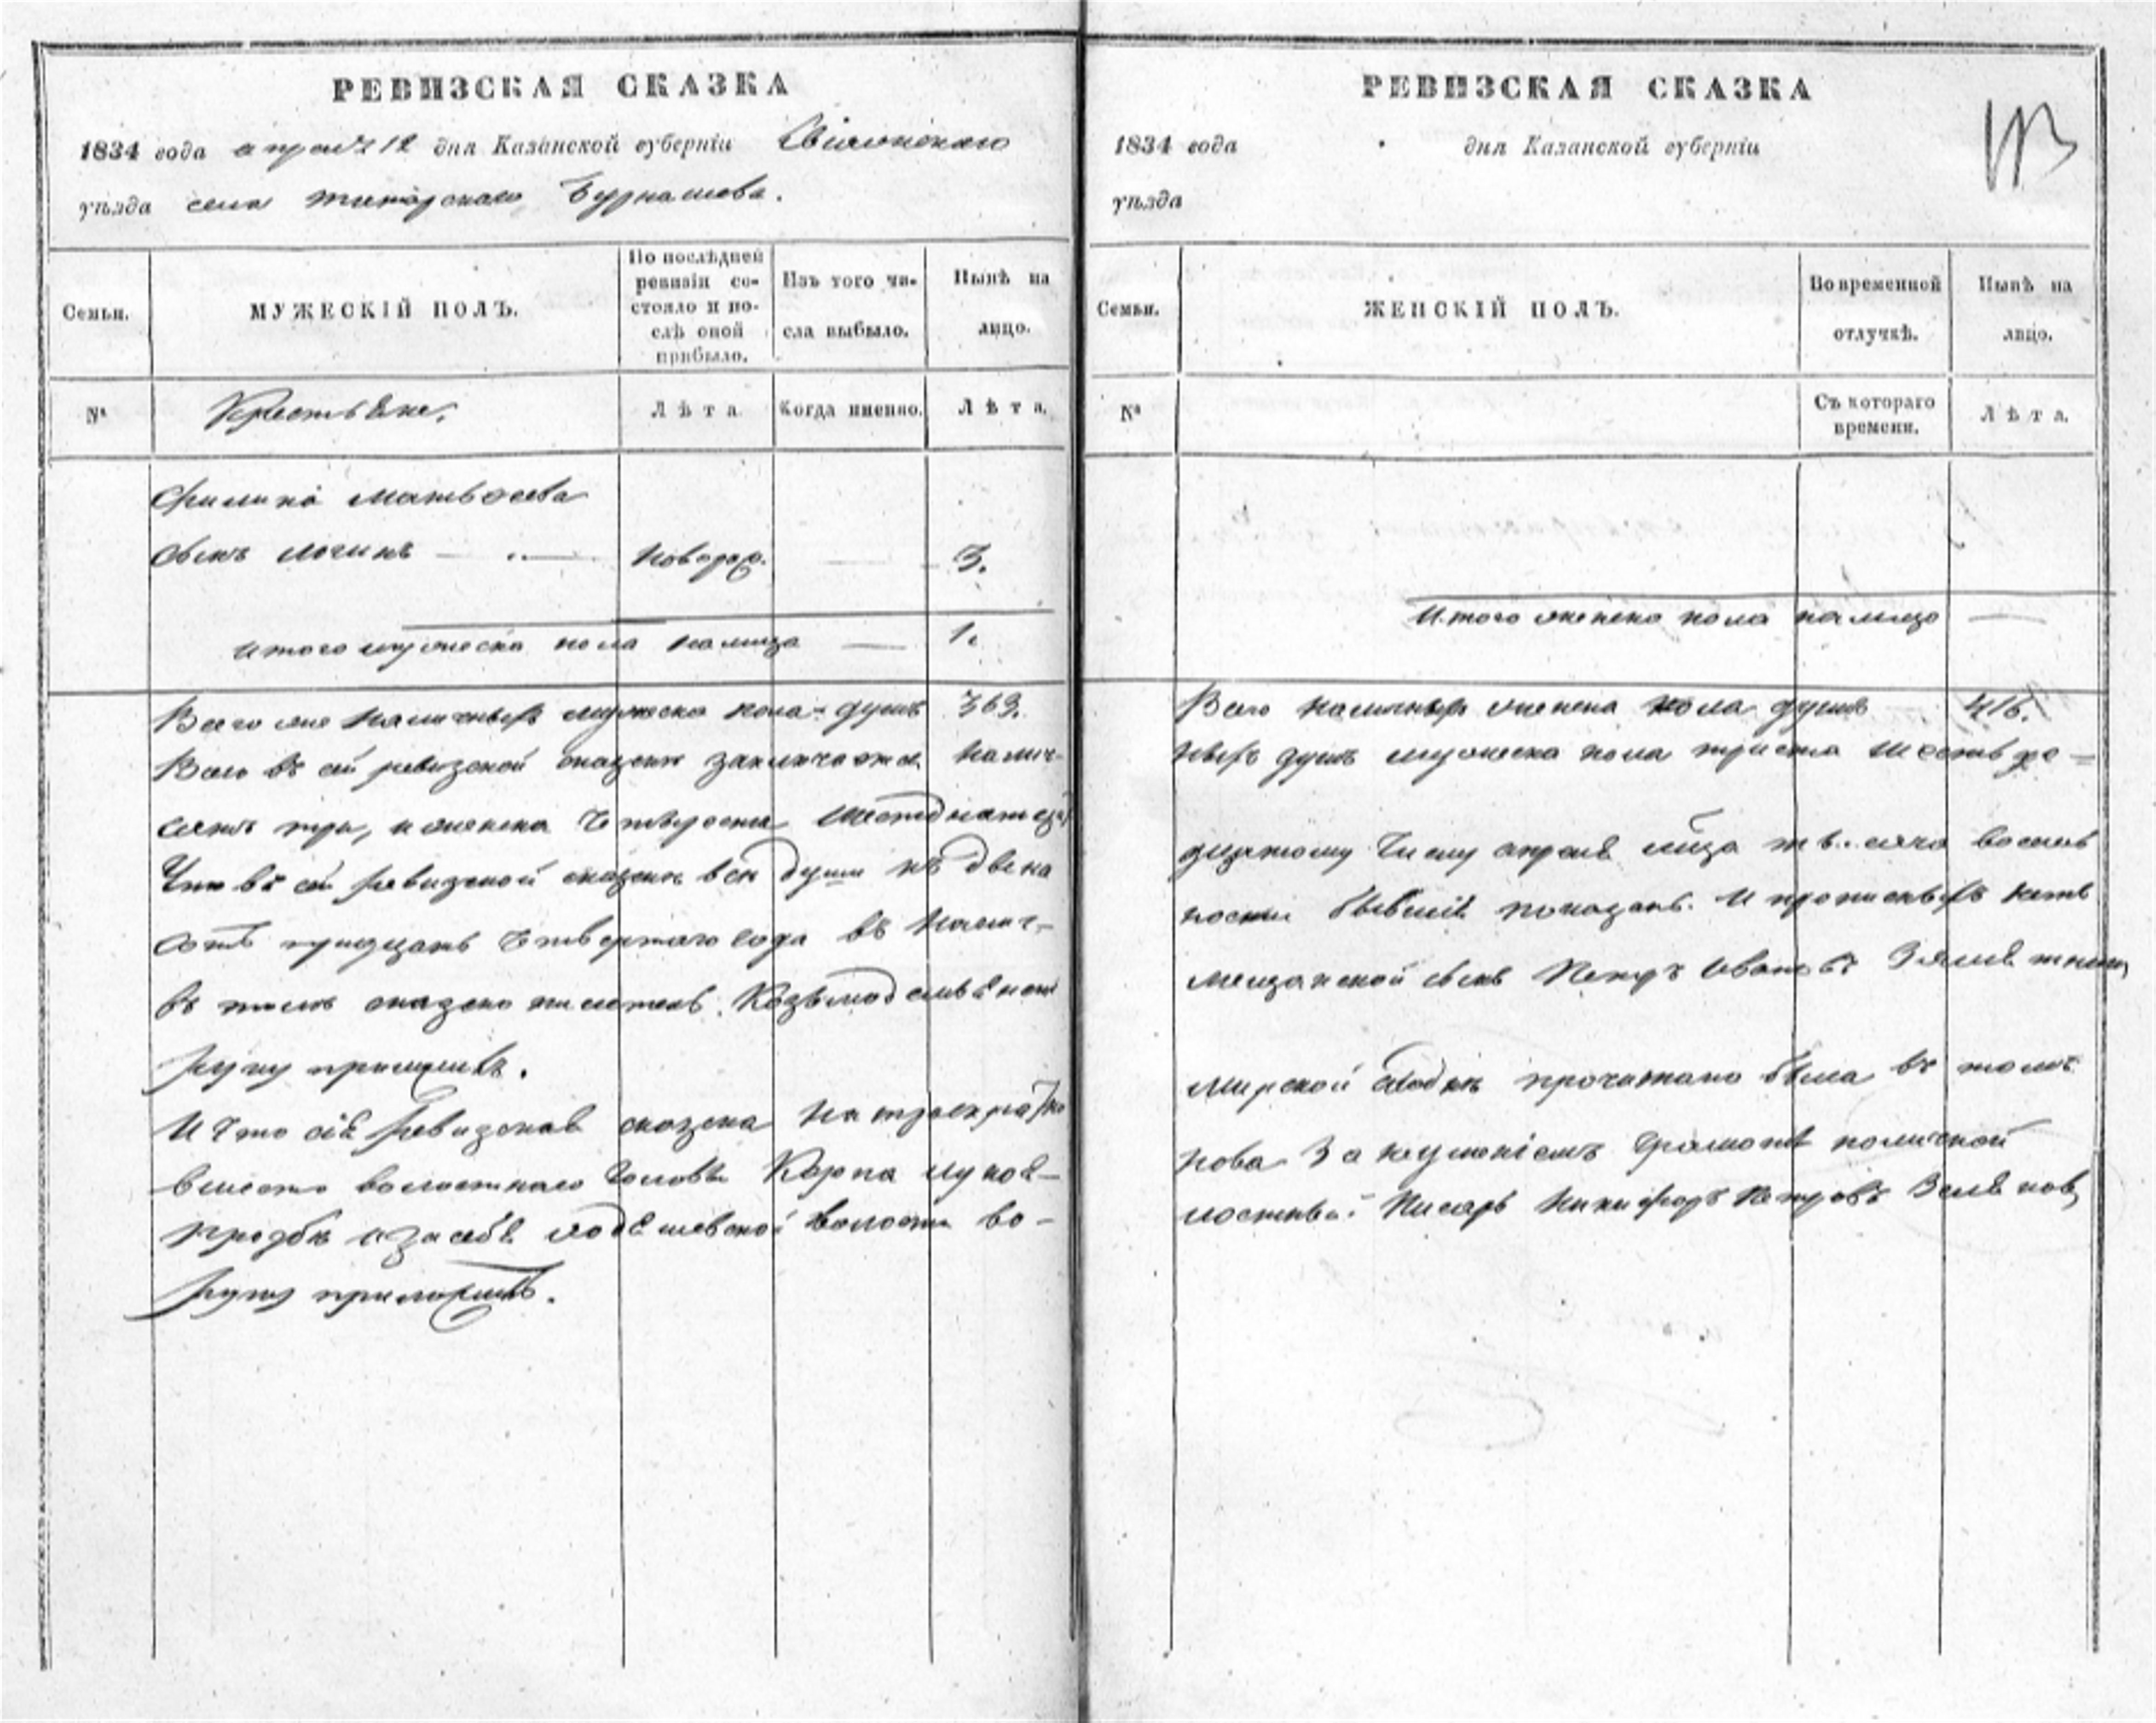 РЕВИЗСКАЯ СКАЗКА
1834 года апреля 12 дня Казанской губерніи Свіяжскаго
уѣзда села Бурнашева.
Семьи.
МУЖЕСКІЙ ПОЛЪ.
По послѣдней ревизіи со-
стояло и по-
слѣ оной
прибыло.
Изъ того чи-
сла выбыло.
Нынѣ на
лицо.
№
Крестьяне.
Лѣта
Когда именно.
Лѣта.
Филипа Матвѣева
сынъ Логинъ
новорож.
3.
Итого мужеска пола налицо
1.
Всего же наличныхъ мужеска пола душъ 363.
Всего въ сей ревизской сказкѣ заключается налич-
сятъ три, и женска четыреста шестнатцать
Что въ сей ревизской сказкѣ всѣ души къ двена
сотъ тридцать четвертаго года въ налич-
въ томъ сказкѣ Козьмодемьянской
руку приложилъ.
И что сія ревизская сказка на
вместо волостнаго головы Карпа Лукоя-
прозбѣ и за себя волости во-
руку приложилъ.
РЕВИЗСКАЯ СКАЗКА
1834 года дня Казанской губерніи
уѣзда
Семьи.
ЖЕНСКІЙ ПОЛЪ.
Во временной
отлучкѣ.
Нынѣ на
лицо.
№
Съ котораго
времени.
Лѣта.
Итого женска пола налицо
Всего наличныхъ женска пола душъ 416.
ныхъ душъ мужеска пола триста шестьде-
дцатому числу апреля мца тысяча восемь
ности бывшія показаны. И прописныхъ нетъ
мещанской сынъ Петръ Ивановъ
мирской сходкѣ прочитана была въ томъ
нова За неуменіемъ грамоте по личной
лостный Писарь Никифоръ Петровъ